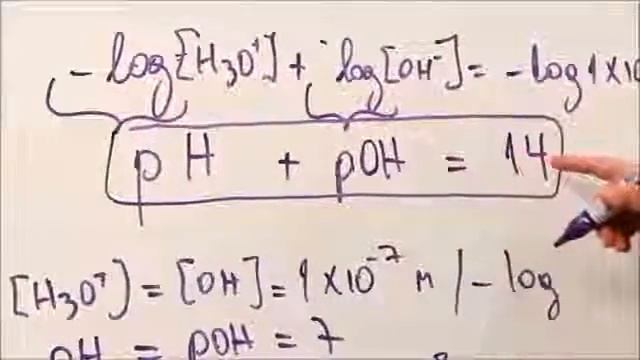 -log[H3O+] + -log[OH-] = -log1×10
pH + pOH = 14
[H3O+] = [OH] = 1×10-7 M /-log
pH = pOH = 7